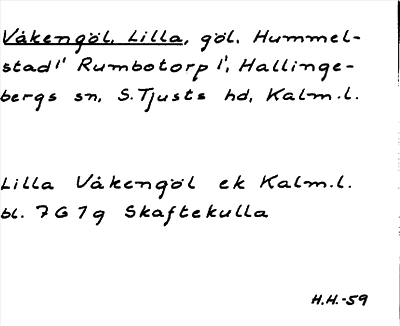 Våkengöl, Lilla, göl. Hummel-
stad 1/1 Rumbotorp 1/1, Hallinge-
bergs sn, S. Tjusts hd, Kalm.l.
Lilla Våkengöl ek Kalm.l.
bl. 7G7g Skaftekulla
H.H.-59